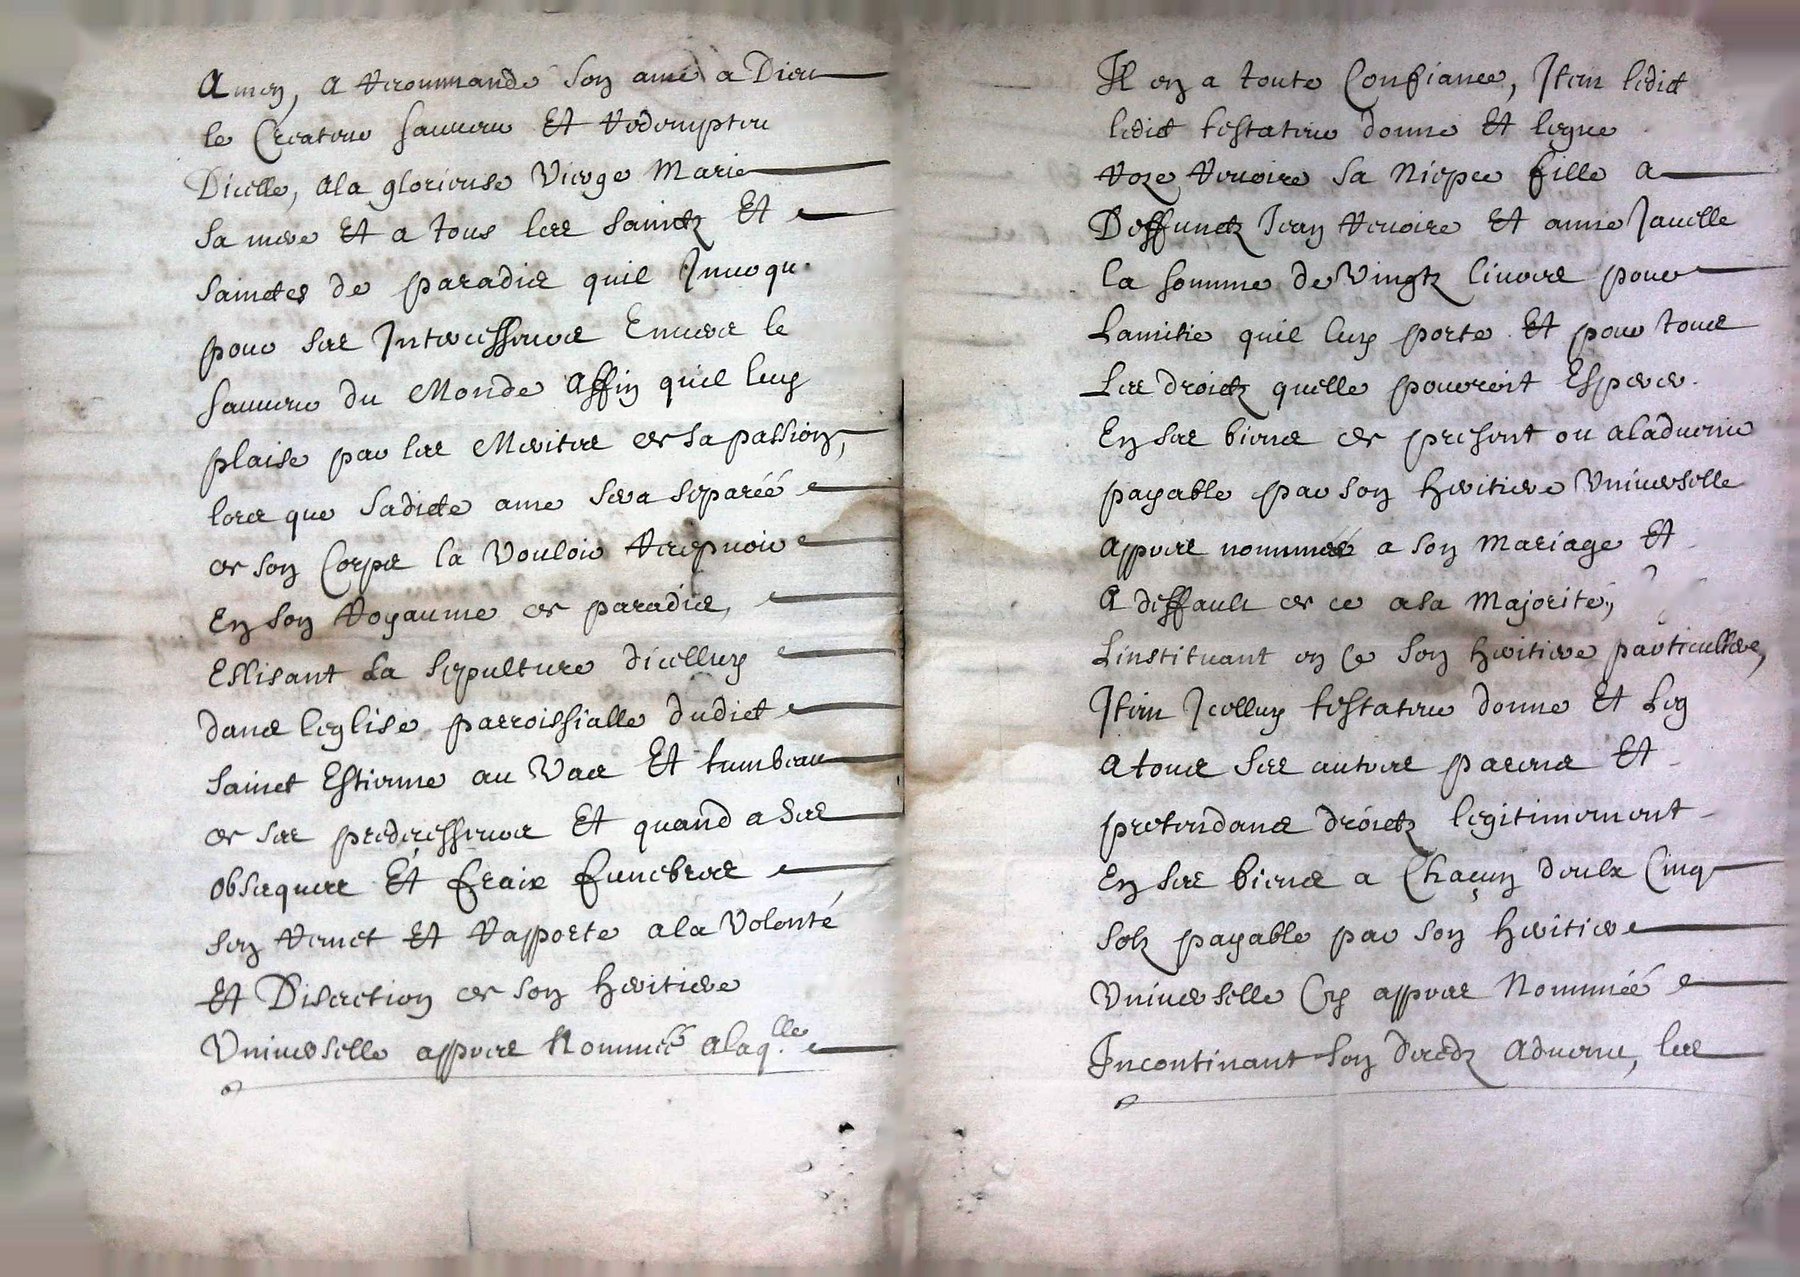 Amen, A recommandé son ame a Dieu
le Createur sauveur Et redempteur
Dicelle, ala glorieuse Vierge Marie
sa mere Et a tous les sainctz Et
sainctes de paradis quil Inuoque
pour ses Intercesseurs Enuers le
sauueur du Monde Affin quil luy
plaise par les Merites de sa passion,
lors que sadicte ame sera separéé
de son Corps la Vouloir recepuoir
En son royaume de paradis,
Eslisant La sepulture dicelluy
dans leglise parroissialle dudict
sainct Estienne au Vas Et tumbeau
de ses predecesseurs Et quand a ses
obseques Et fraix funebres
sen remet Et rapporte ala Volonté
Et Discretion de son heritiere
Uniuerselle appres Nommeé alaq.lle
Il en a toute Confiance, Item ledict
ledict testateur donne Et legue
roze reuoire sa Niepce fille a
Deffunctz Jean reuoire Et anne Jauelle
la somme de Vingtz liures pour
Lamitie quil luy porte Et pour tous
Les droictz quelle pouroit Esperer
En ses biens de present ou aladuenir
payable par son heritiere Uniuerselle
appres nommeé a son Mariage Et
A deffault de ce asa Majorité,
Linstituant en ce son heritiere particulliere,
Item Icelluy testateur donne Et Leg
A tous ses autres parens Et
pretendans droictz legitimement
En ses biens a Chacun d'eulx Cinq
solz payable par son heritiere
Uniuerselle Cy appres Nomméé
Incontinant son decedz Aduenu, les